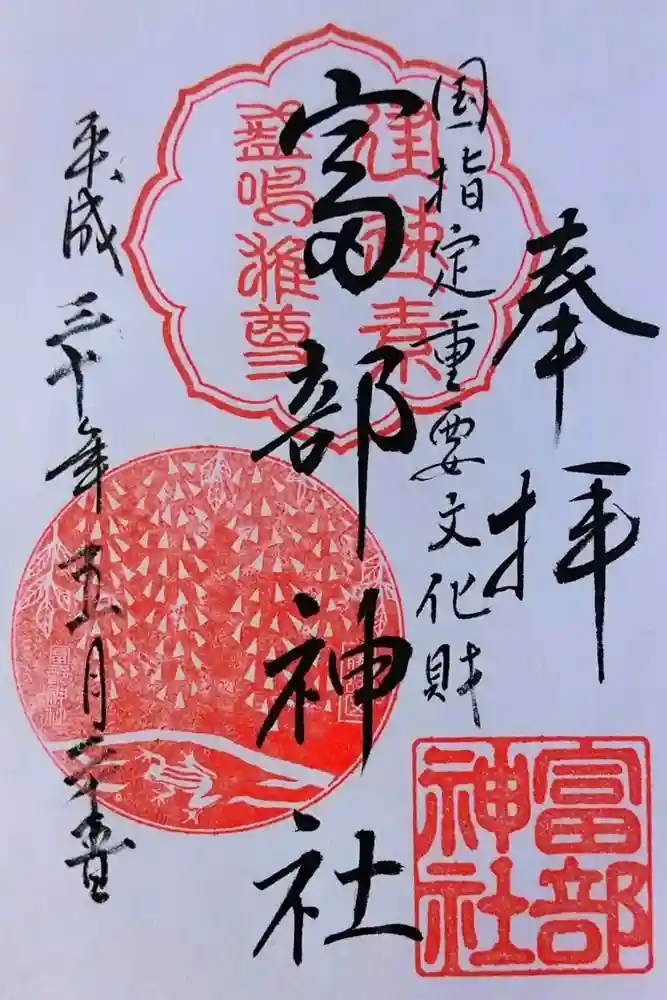 奉拝
国指定重要文化財
富部神社
平成三十年五月二十六日
建速素
盞嗚雅尊
富部
神社
富部神社